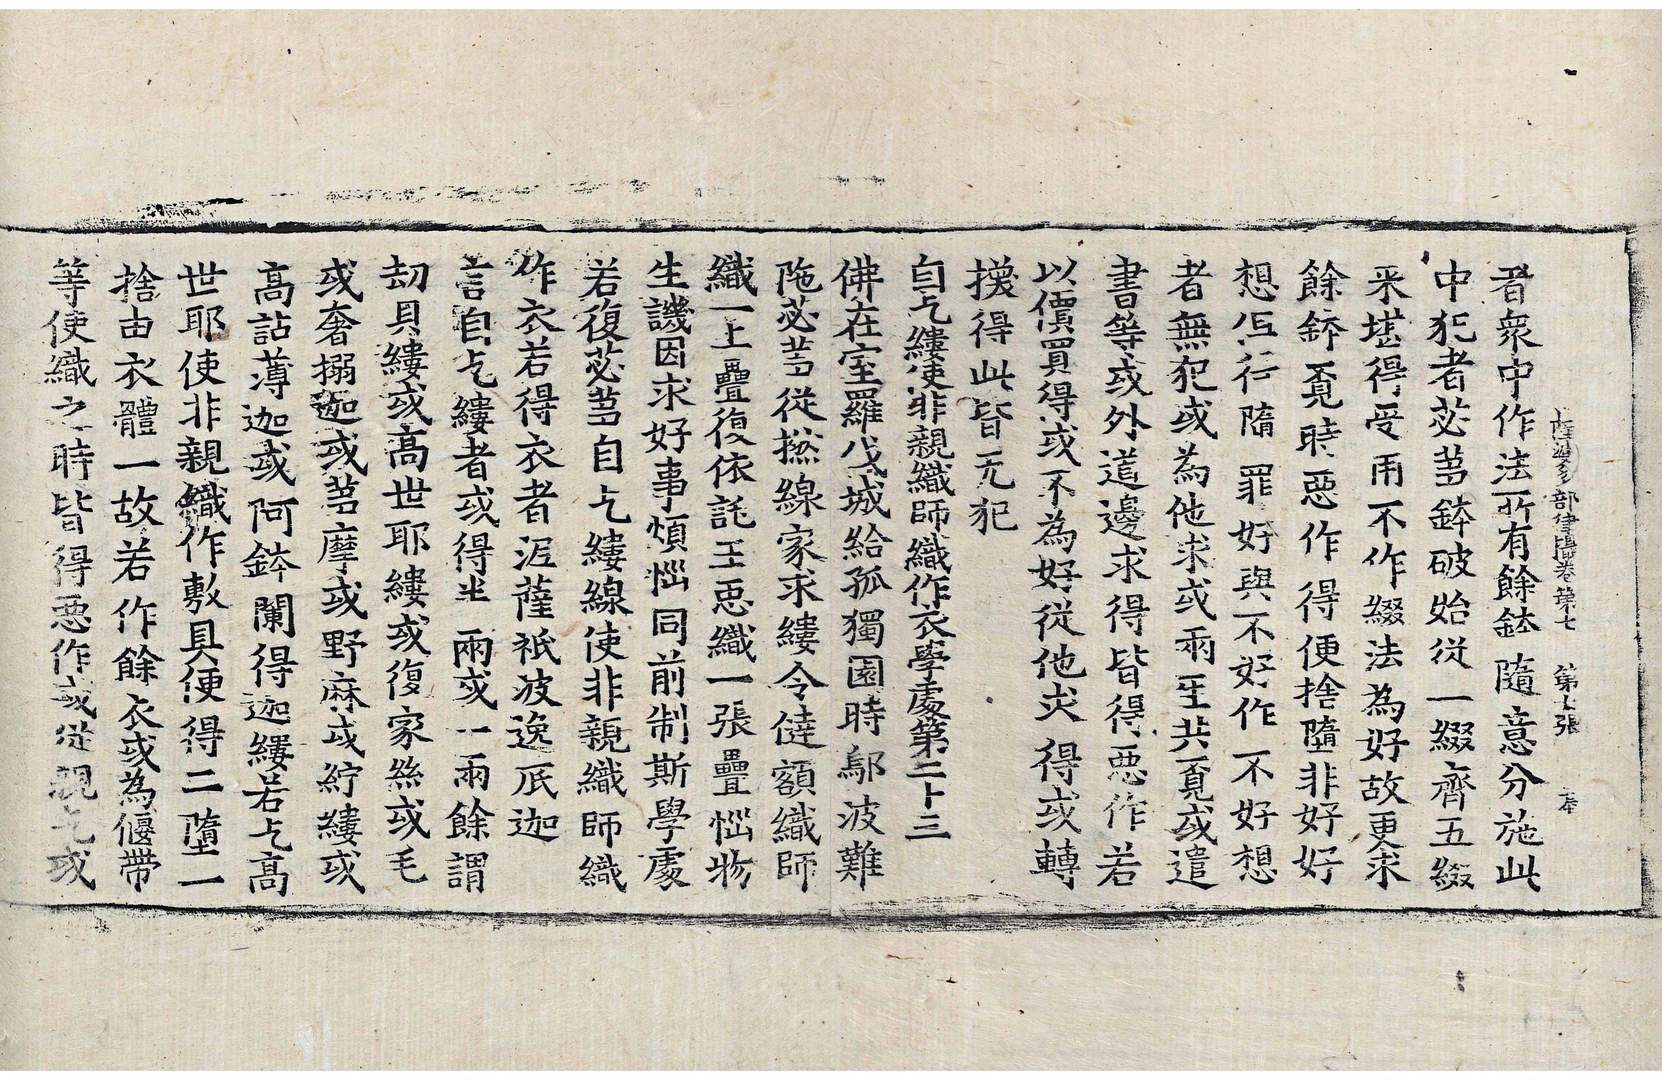 薩婆多部律攝卷第七 第七張 奉
者衆中作法所有餘鉢隨意分施此
中犯者苾蒭鉢破始從一綴齊五綴
来堪得受用不作綴法為好故更求
餘鉢覔時惡作得便捨墮非好好
想但行墮罪好與不好作不好想
者無犯或為他求或兩主共覔或遣
書等或外道邊求得皆得惡作若
以價買得或不為好從他求得或轉
換得此皆无犯
自乞縷使非親織師織作衣學處第二十三
佛在室羅伐城給孤獨園時鄔波難
陁苾蒭從撚線家求縷令倢額織師
織一上疊復依託王惡織一張疊惱物
生譏因求好事煩惱同前制斯學處
若復苾蒭自乞縷線使非親織師織
作衣若得衣者泥薩祇波逸底迦
言自乞縷者或得半兩或一兩餘謂
劫貝縷或高世耶縷或復家絲或毛
或奢搦迦或蒭摩或野麻或紵縷或
高詀薄迦或阿鉢闌得迦縷若乞高
世耶使非親織作敷具便得二墮一
捨由衣體一故若作餘衣或為偃帶
等使織之時皆得惡作或從親乞或